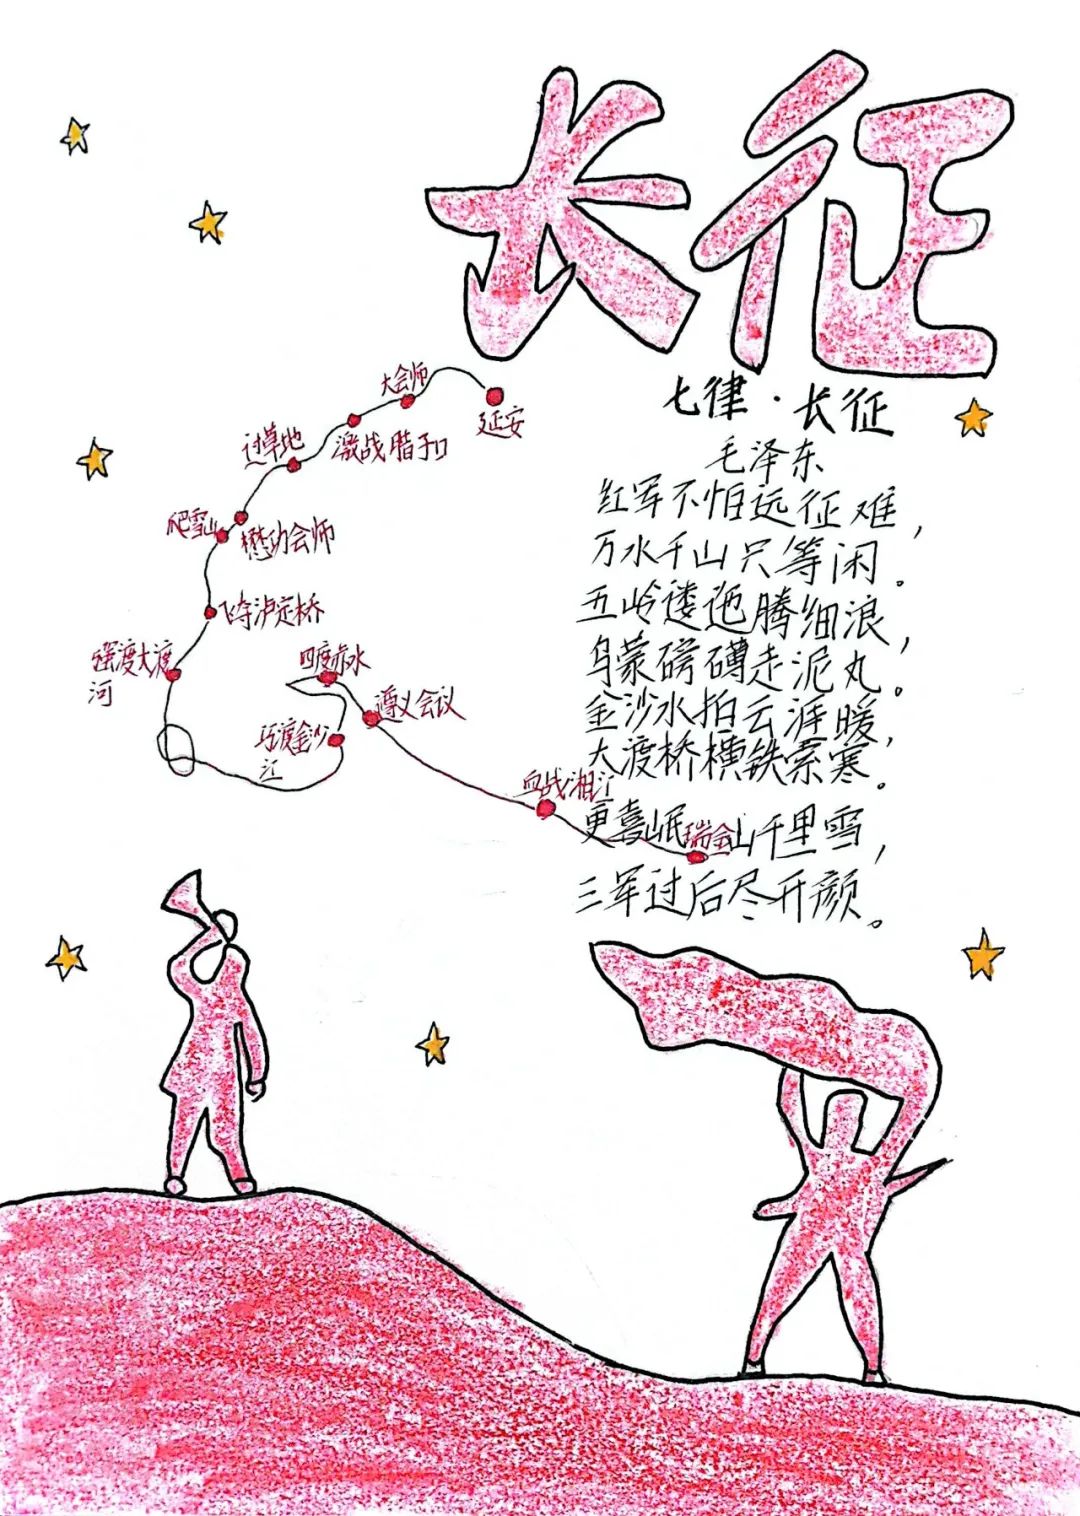 长征
七律·长征
毛泽东
红军不怕远征难，
万水千山只等闲。
五岭逶迤腾细浪，
乌蒙磅礴走泥丸。
金沙水拍云涯暖，
大渡桥横铁索寒。
更喜岷山千里雪，
三军过后尽开颜。
大会师
延安
激战腊子口
过草地
爬雪山
懋功会师
飞夺泸定桥
强渡大渡
河
四度赤水
遵义会议
巧渡金沙
江
血战湘江
瑞金